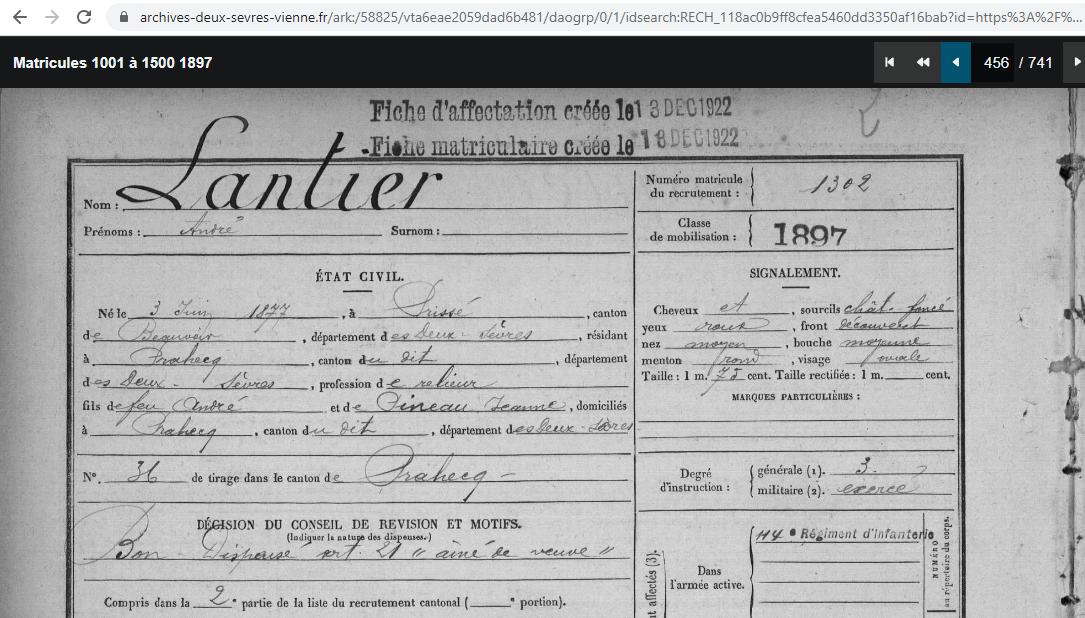 archives-deux-sevres-vienne.fr/ark:/58825/vta6eae2059dad6b481/daogrp/0/1/idsearch:RECH_118ac0b9ff8cfea5460dd3350af16bab?id=https%3A%2F%...
Matricules 1001 à 1500 1897
456 / 741
Fiche d'affectation créée le 13 DEC 1922
Fiche matriculaire créée le 18 DEC 1922
Nom : Lantier
Prénoms : André Surnom :
Numéro matricule
du recrutement : 1302
Classe
de mobilisation : 1897
ÉTAT CIVIL.
Né le 3 Juin 1877, à Prissé, canton
de Beauvoir, département des Deux-Sèvres, résidant
à Prahecq, canton du dit, département
des Deux-Sèvres, profession de relieur
fils de feu André et de Pineau Jeanne, domiciliés
à Prahecq, canton du dit, département des Deux-Sèvres
N°. 36 de tirage dans le canton de Prahecq
DÉCISION DU CONSEIL DE REVISION ET MOTIFS.
(Indiquer la nature des dispenses.)
Bon Dispensé art. 21 "aîné de veuve"
Compris dans la 2e partie de la liste du recrutement cantonal ( e portion).
SIGNALEMENT.
Cheveux et, sourcils chât. foncé
yeux roux, front découvert
nez moyen, bouche moyenne
menton rond, visage ovale
Taille : 1 m. 75 cent. Taille rectifiée : 1 m. cent.
MARQUES PARTICULIÈRES :
Degré
d'instruction :
générale (1). 3
militaire (2). exercé
affectés (3).
Dans
l'armée active.
114e Régiment d'Infanterie
NUMÉRO
au répertoire du corps.